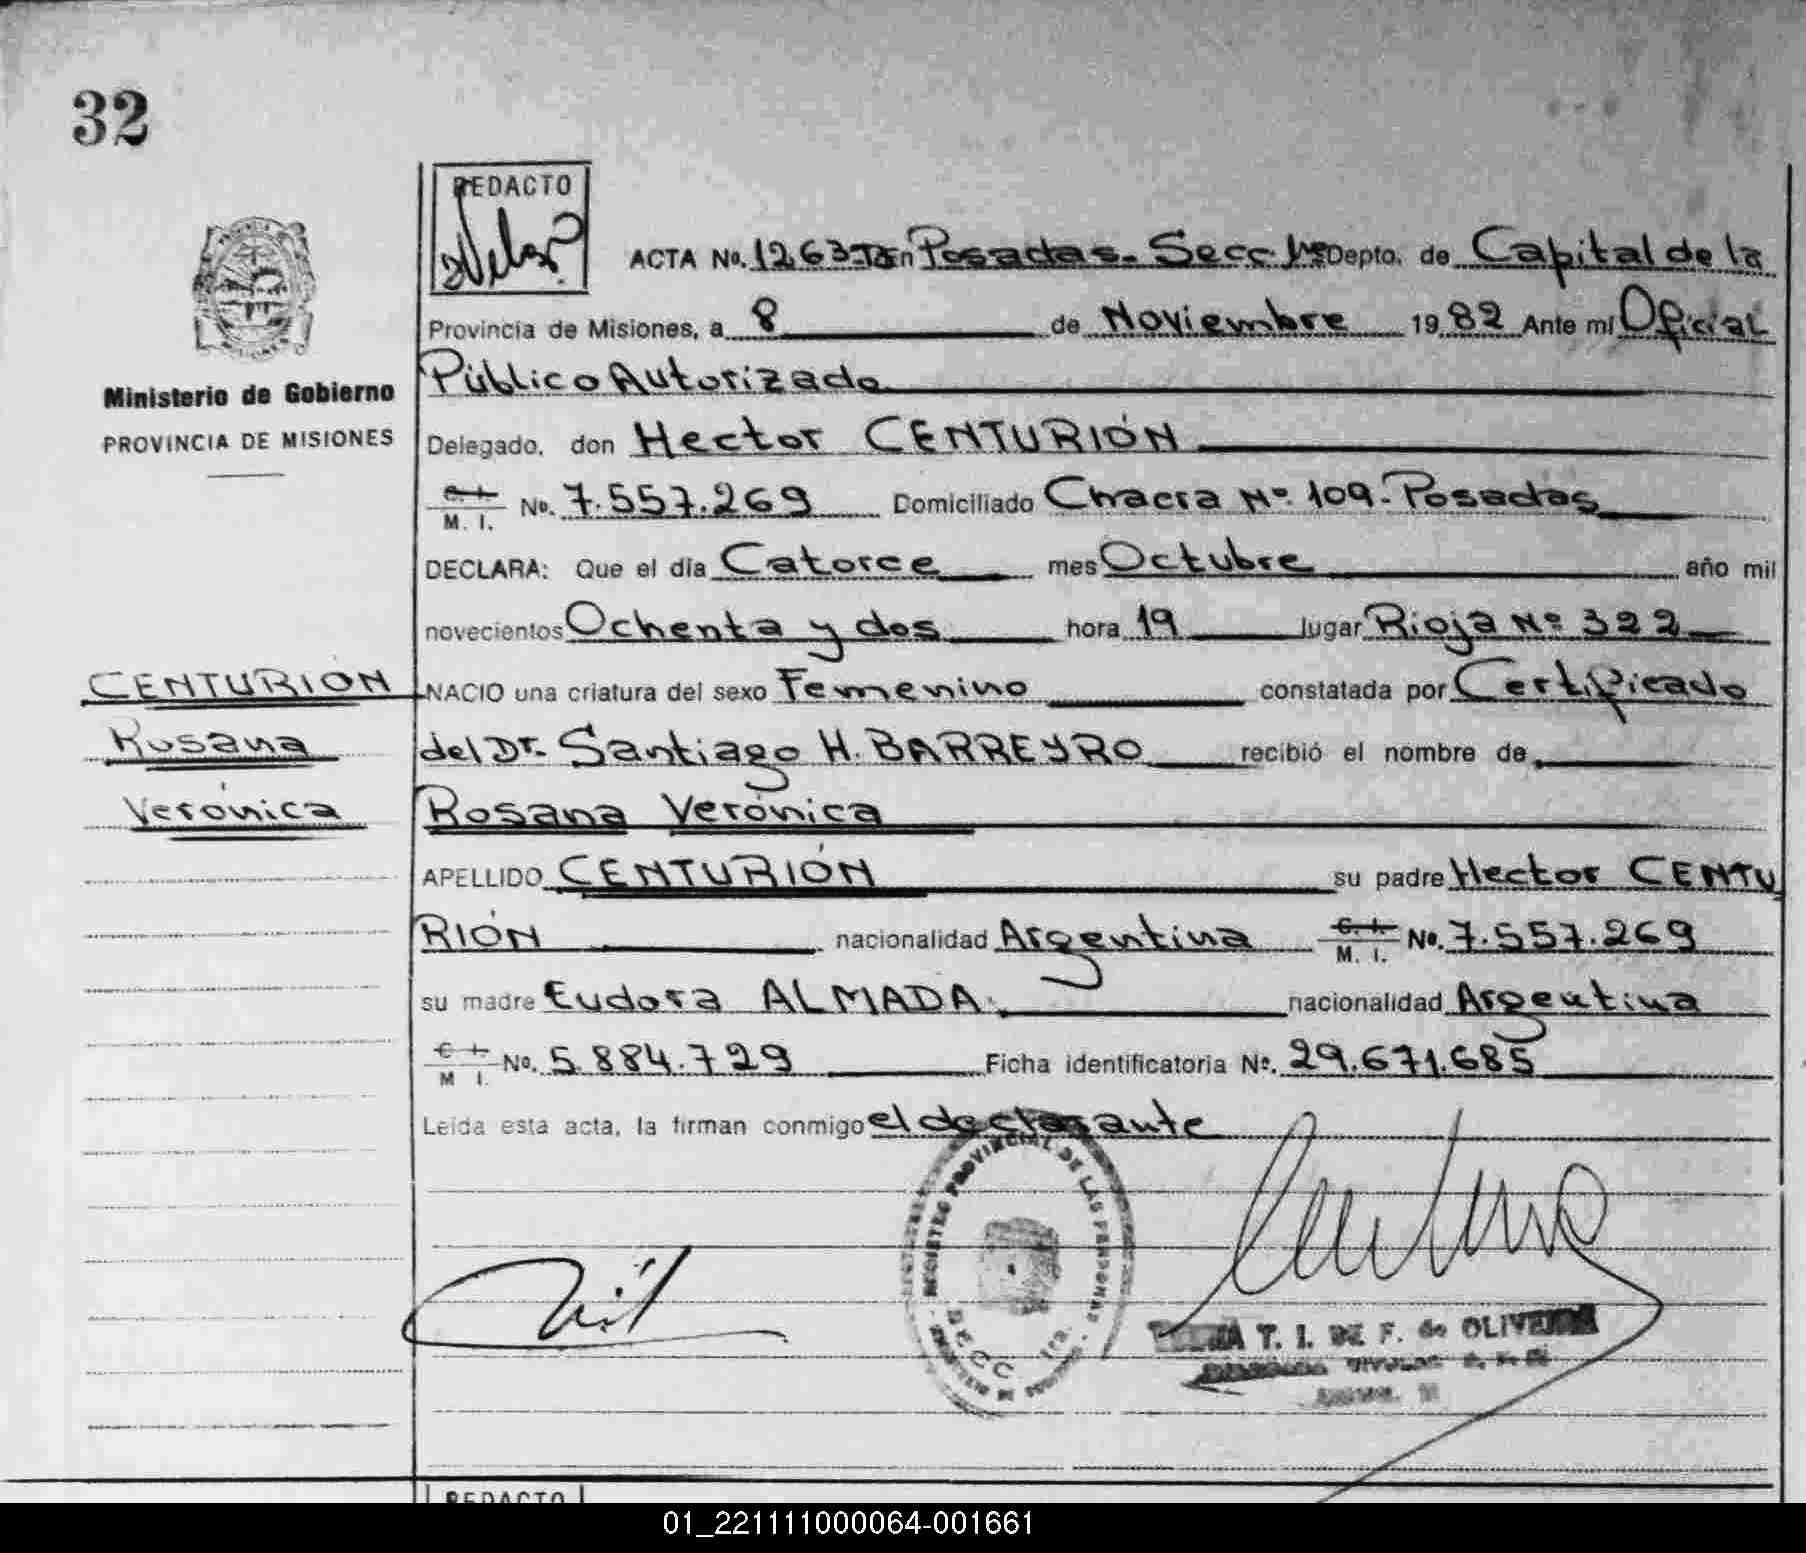 32
REDACTO
ACTA No. 1263-T5 En Posadas - Secc. 1ra Depto. de Capital de la
Provincia de Misiones, a 8 de Noviembre 1982 Ante mí Oficial
Público Autorizado
Ministerio de Gobierno
PROVINCIA DE MISIONES
Delegado, don Hector CENTURIÓN
C. I. M. I. No. 7.557.269 Domiciliado Chacra Nº 109 - Posadas
DECLARA: Que el día Catorce mes Octubre año mil
novecientos Ochenta y dos hora 19 lugar Rioja Nº 322
CENTURIÓN
Rosana
Verónica
NACIO una criatura del sexo Femenino constatada por Certificado
del Dr. Santiago H. BARREYRO recibió el nombre de
Rosana Verónica
APELLIDO CENTURIÓN su padre Hector CENTU
RIÓN nacionalidad Argentina C. I. M. I. No. 7.557.269
su madre Eudora ALMADA. nacionalidad Argentina
C. I. M. I. No. 5.884.729 Ficha identificatoria Nº. 29.671.685
Leida esta acta, la firman conmigo el declarante
REGISTRO PROVINCIAL DE LAS PERSONAS
SECC 1ra.
T. I. DE F. de OLIVEIRA
REDACTO
01_221111000064-001661